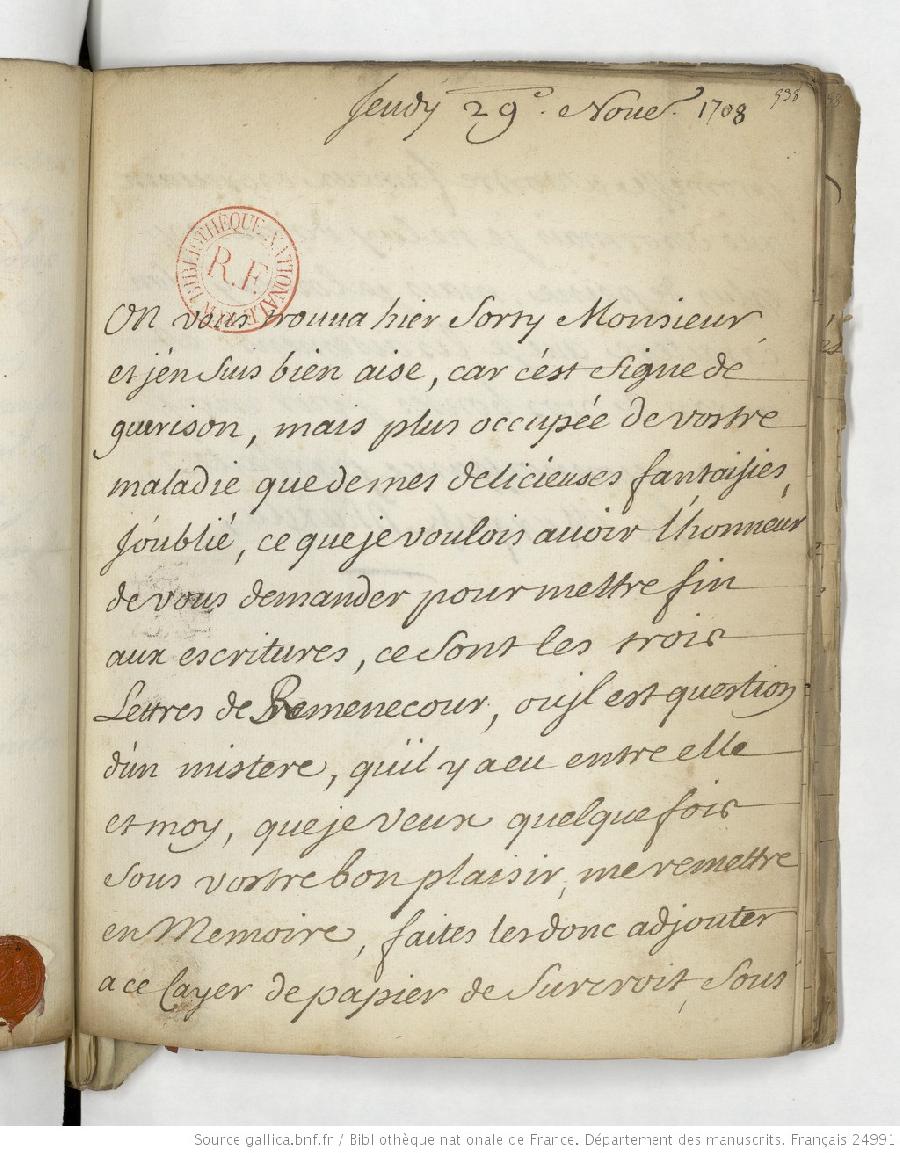 Jeudy 29e. Noue^r. 1708
938
BIBLIOTHÈQUE NATIONALE
R.F.
MANUSCRITS
On vous trouua hier Sorty Monsieur
et j'en suis bien aise, car c'est signe de
guerison, mais plus occupée de vostre
maladie que de mes delicieuses fantaisies,
J'oublié, ce que je voulois auoir l'honneur
de vous demander pour mettre fin
aux escritures, ce sont les trois
Lettres de Remenecour, ou jl est question
d'un mistere, qu'il y a eu entre elle
et moy, que je veux quelque fois
sous vostre bon plaisir, me remettre
en Memoire, faites les donc adjouter
a ce Cayer de papier de Surcroit, Sous
Source gallica.bnf.fr / Bibliothèque nationale de France. Département des manuscrits. Français 24991